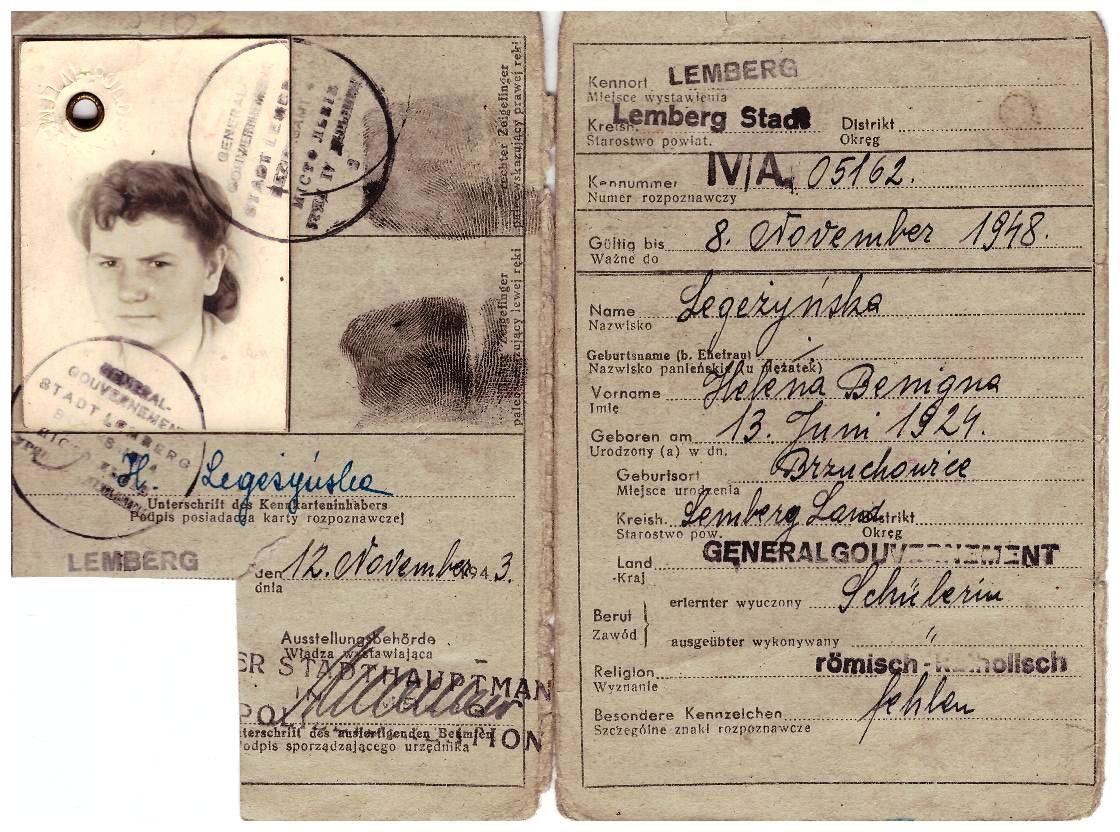 GENERAL-
GOUVERNEMENT
STADT LEMBERG
rechter Zeigefinger
palec wskazujący prawej ręki
Zeigefinger
palec wskazujący lewej ręki
GENERAL-
GOUVERNEMENT
STADT LEMBERG
H. Legeżyńska
Unterschrift des Kennkarteninhabers
Podpis posiadacza karty rozpoznawczej
LEMBERG den 12. November 1943.
dnia
Ausstellungsbehörde
Władza wystawiająca
ER STADTHAUPTMAN
IN
POL
TION
terschrift des ausfertigenden Beamten
odpis sporządzającego urzędnika
Kennort LEMBERG
Miejsce wystawienia
Kreish. Lemberg Stadt Distrikt
Starostwo powiat. Okręg
Kennummer IV/A 05162.
Numer rozpoznawczy
Gültig bis 8. November 1948.
Ważne do
Name Legeżyńska
Nazwisko
Geburtsname (b. Ehefrau)
Nazwisko panieńskie (u mężatek)
Vorname Helena Benigna
Imię
Geboren am 13. Juni 1924.
Urodzony (a) w dn.
Geburtsort Brzuchowice
Miejsce urodzenia
Kreish. Lemberg Land Distrikt
Starostwo pow. Okręg
Land GENERALGOUVERNEMENT
Kraj
Beruf erlernter wyuczony Schülerin
Zawód ausgeübter wykonywany "
Religion römisch-katholisch
Wyznanie
Besondere Kennzeichen fehlen
Szczególne znaki rozpoznawcze